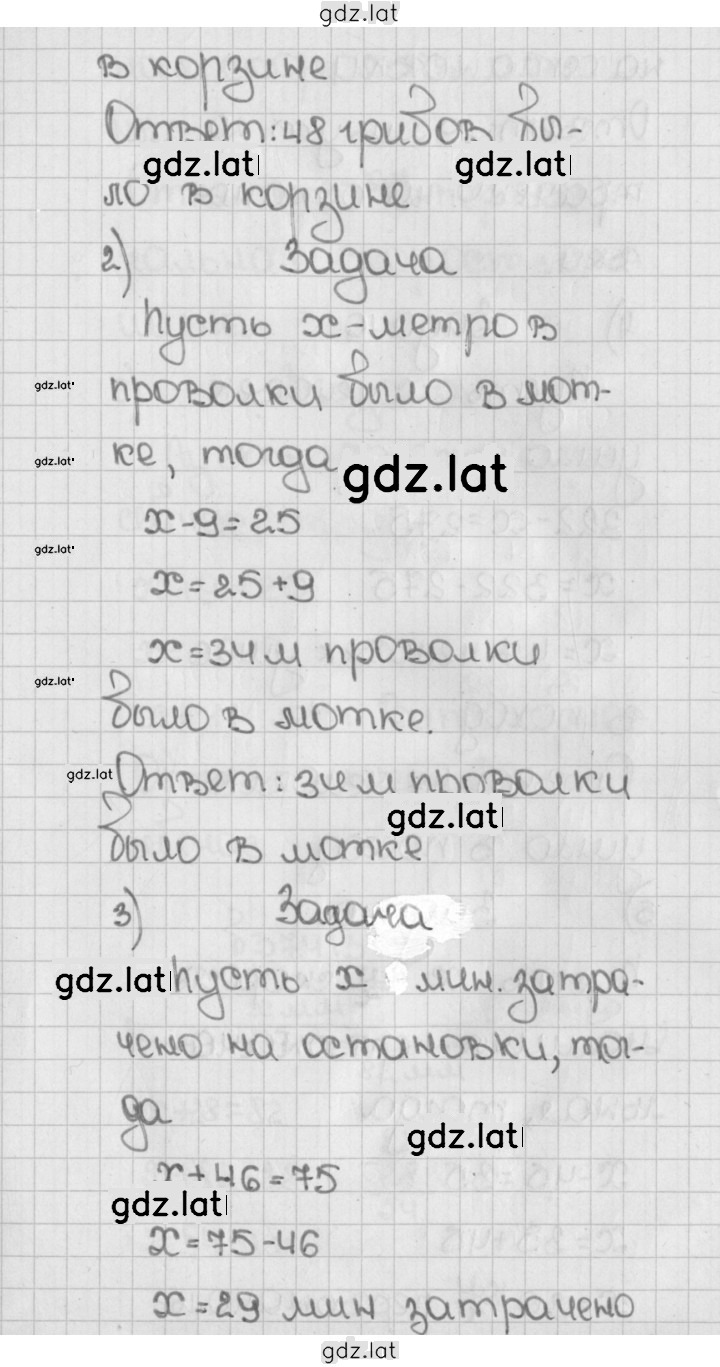 gdz.lat
в корзине
Ответ: 48 грибов бы-
gdz.lat gdz.lat
ло в корзине
2) Задача
Пусть x-метров
gdz.lat проволки было в мот-
gdz.lat ке, тогда gdz.lat
x-9=25
gdz.lat
x=25+9
x=34 м проволки
gdz.lat
было в мотке.
gdz.lat Ответ: 34 м проволки
gdz.lat
было в мотке
3) Задача
gdz.lat Пусть x мин. затра-
чено на остановки, тог-
да
gdz.lat
x+46=75
gdz.lat
x=75-46
x=29 мин затрачено
gdz.lat